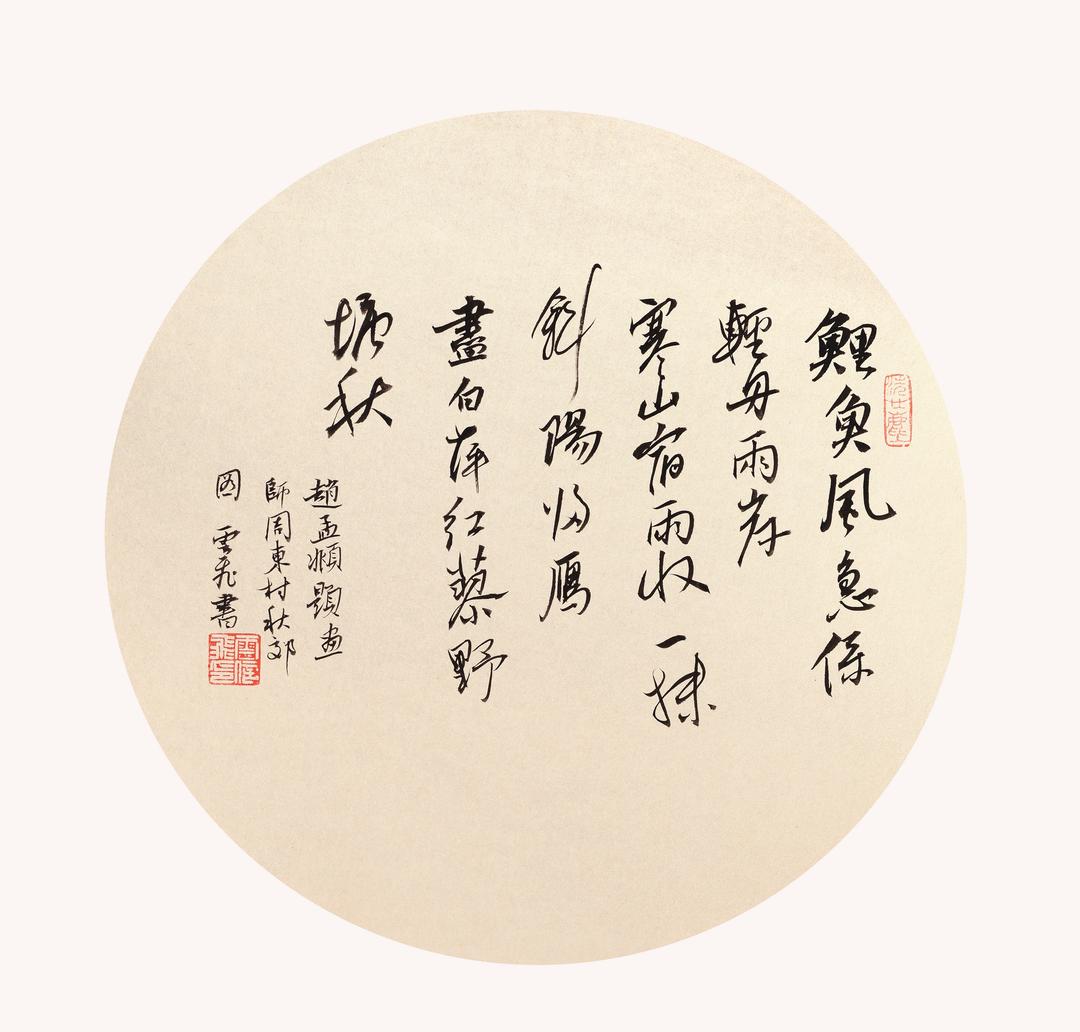 鯉魚風急係
輕舟兩岸
寒山宿雨收一抹
斜陽歸雁
盡白蘋紅蓼野
塘秋
趙孟頫題畫
師周東村秋郊
圖 雲飛書
洗世塵